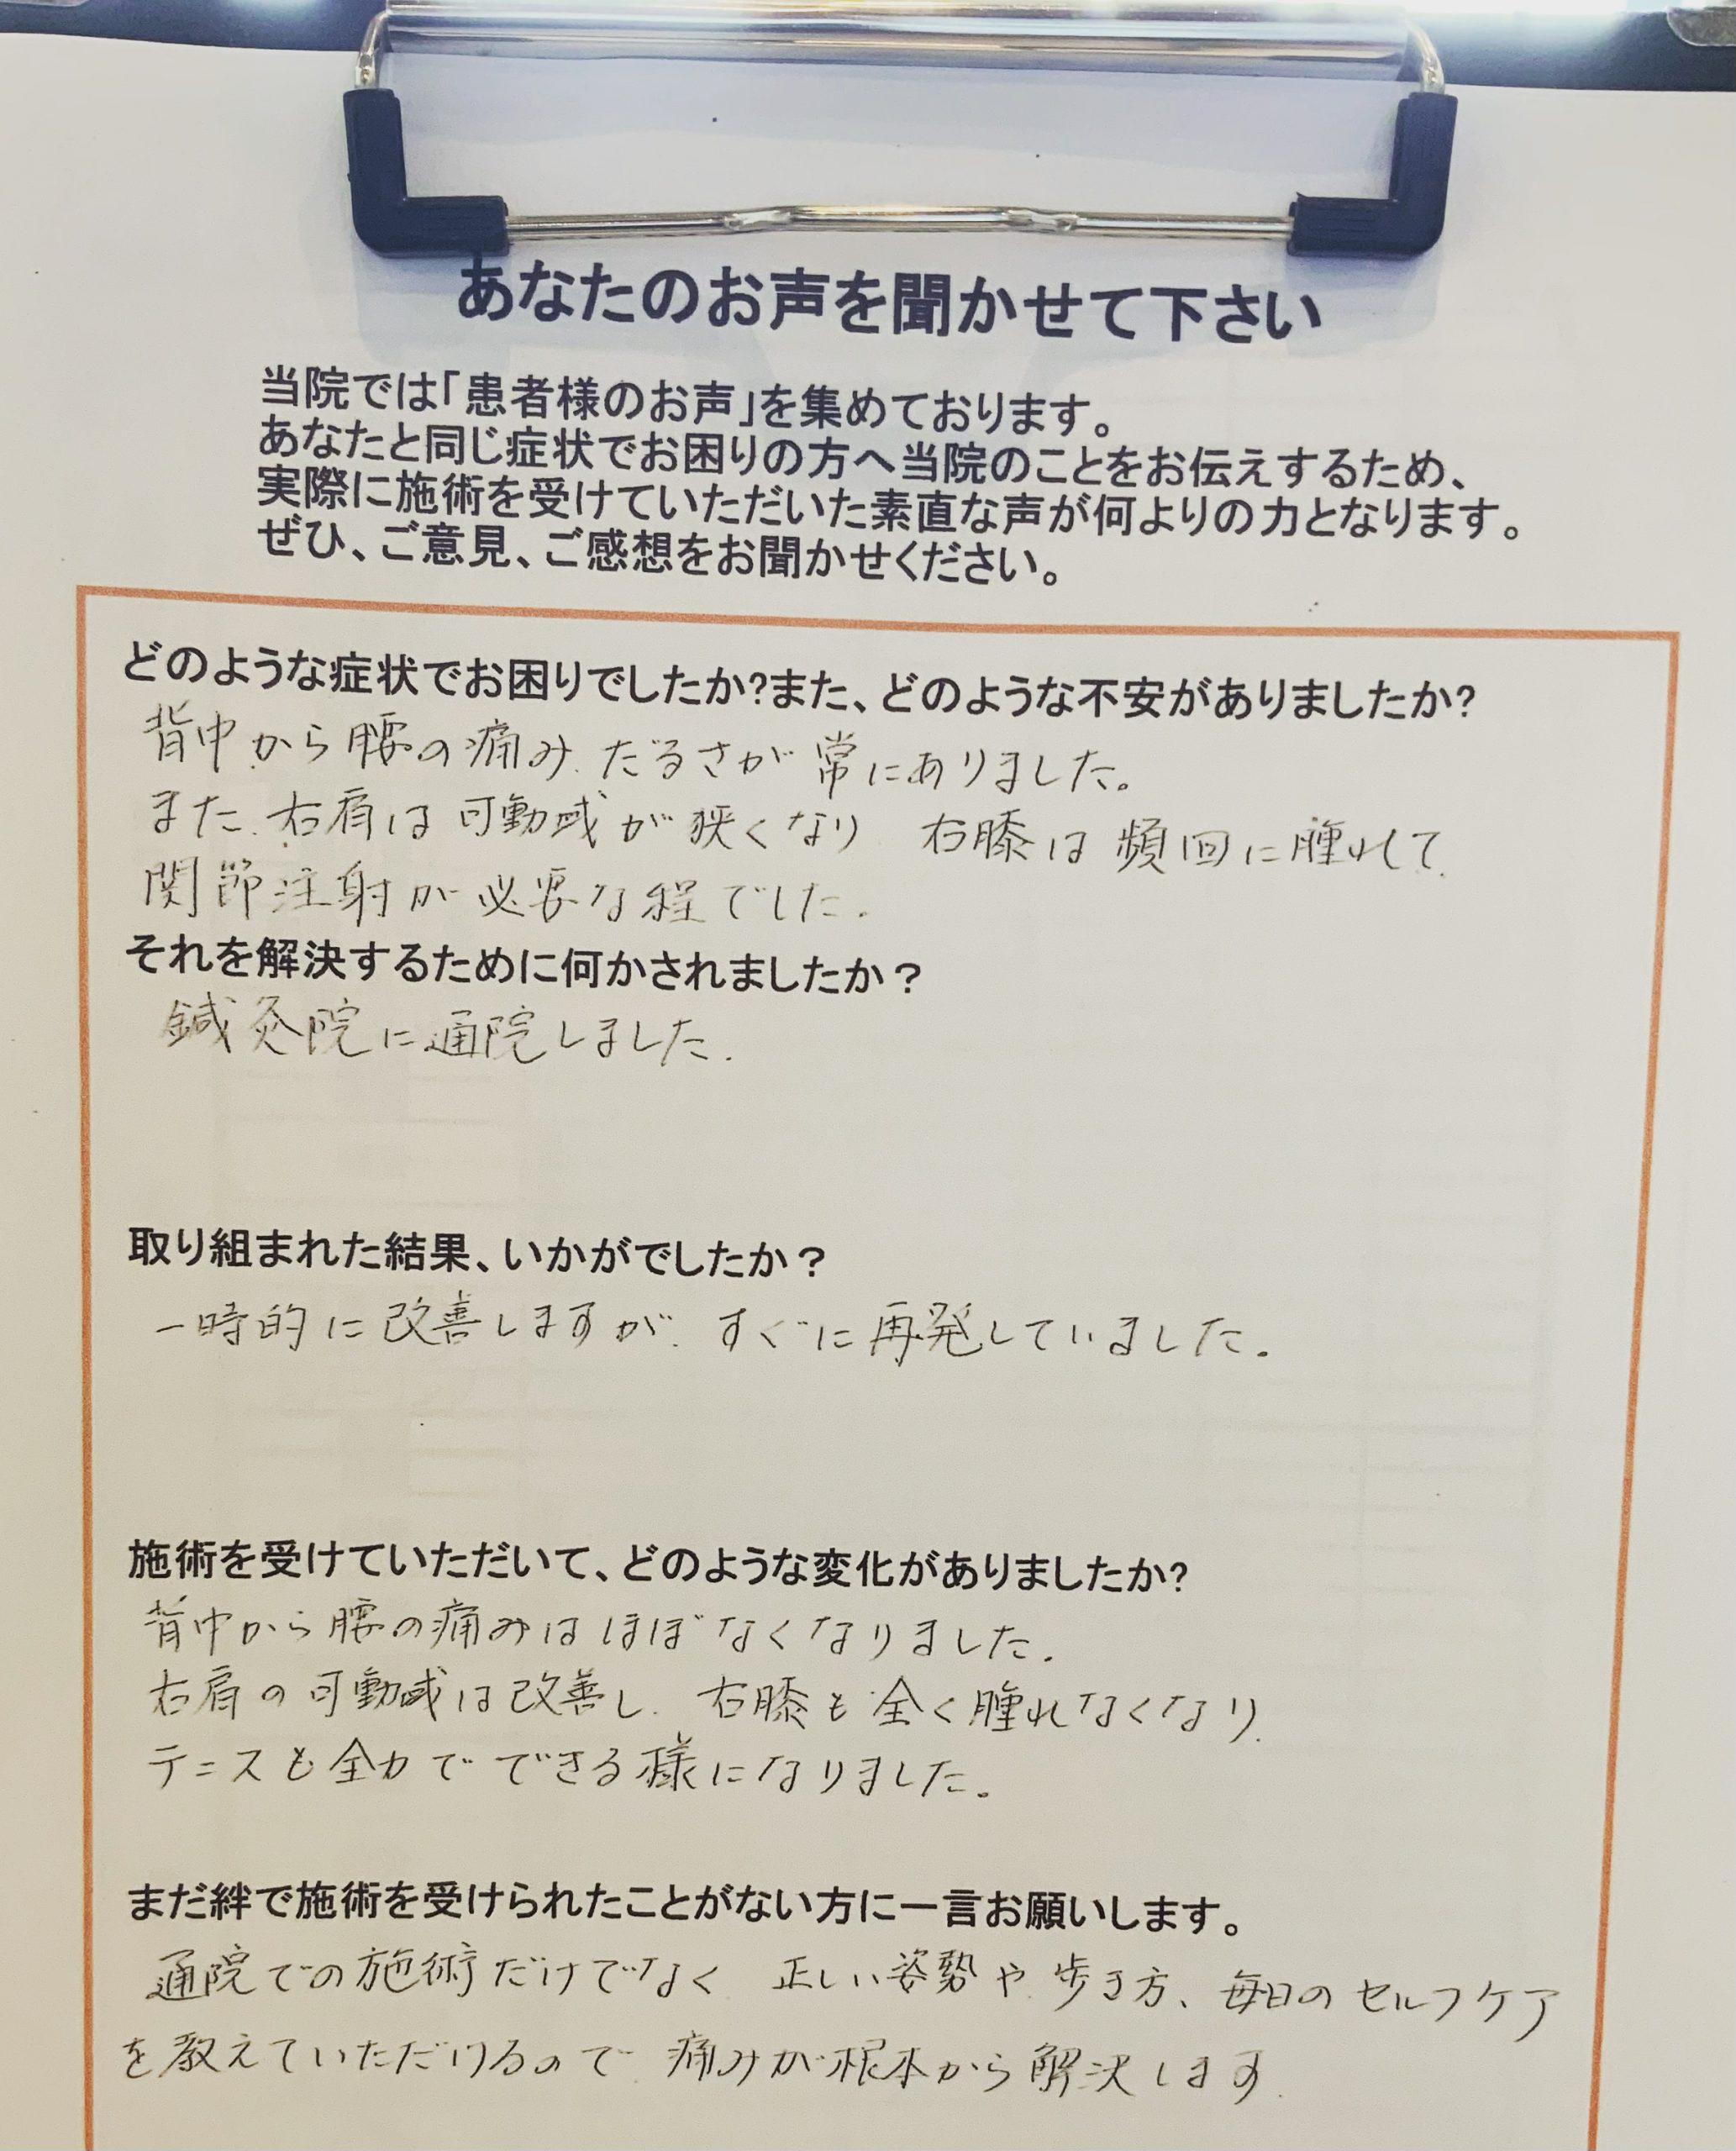 あなたのお声を聞かせて下さい
当院では「患者様のお声」を集めております。
あなたと同じ症状でお困りの方へ当院のことをお伝えするため、
実際に施術を受けていただいた素直な声が何よりの力となります。
ぜひ、ご意見、ご感想をお聞かせください。
どのような症状でお困りでしたか?また、どのような不安がありましたか?
背中から腰の痛み、だるさが常にありました。
また、右肩は可動域が狭くなり 右膝は頻回に腫れて
関節注射が必要な程でした。
それを解決するために何かされましたか？
鍼灸院に通院しました。
取り組まれた結果、いかがでしたか？
一時的に改善しますが、すぐに再発していました。
施術を受けていただいて、どのような変化がありましたか?
背中から腰の痛みはほぼなくなりました。
右肩の可動域は改善し、右膝も全く腫れなくなり、
テニスも全力でできる様になりました。
まだ絆で施術を受けられたことがない方に一言お願いします。
通院での施術だけでなく 正しい姿勢や歩き方、毎日のセルフケア
を教えていただけるので、痛みが根本から解決します。